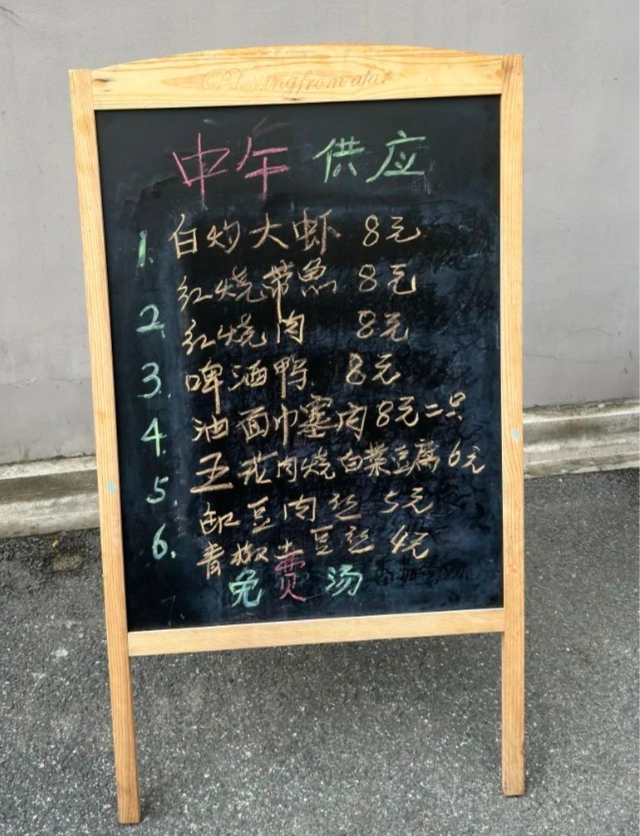 Blessing from afar
中午供应
1. 白灼大虾 8元
红烧带魚 8元
2. 红烧肉 8元
3. 啤酒鸭 8元
4. 油面巾塞肉 8元二只
五花肉烧白菜豆腐 6元
5. 缸豆肉丝 5元
6. 青椒土豆丝 4元
免费汤
7.